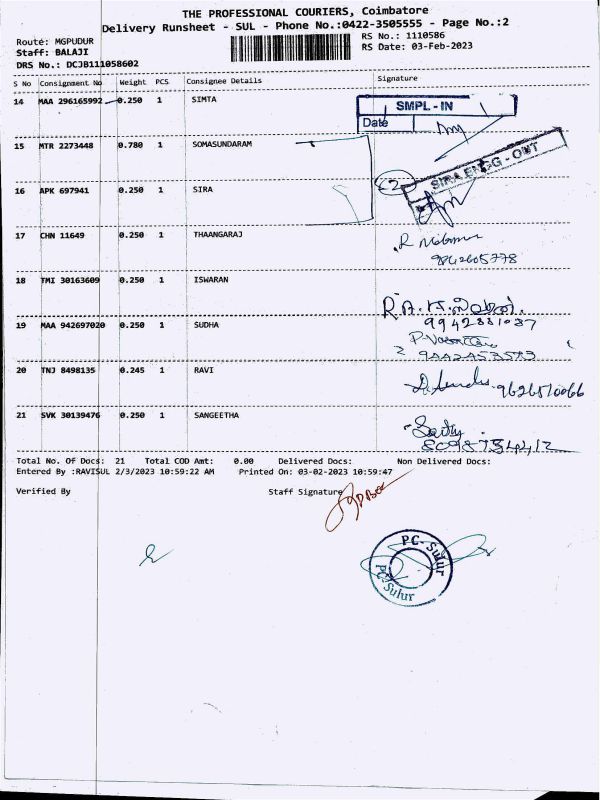 THE PROFESSIONAL COURIERS, Coimbatore
Delivery Runsheet - SUL - Phone No.:0422-3505555 - Page No.:2
Route: MGPUDUR
RS No.: 1110586
Staff: BALAJI
RS Date: 03-Feb-2023
DRS No.: DCJB111058602
S No Consignment No Weight PCS Consignee Details Signature
14 MAA 296165992 0.250 1 SIMTA
SMPL - IN
Date
15 MTR 2273448 0.780 1 SOMASUNDARAM
SIRA ENGG - OUT
16 APK 697941 0.250 1 SIRA
17 CHN 11649 0.250 1 THAANGARAJ
9842605778
18 TMI 30163609 0.250 1 ISWARAN
19 MAA 942697020 0.250 1 SUDHA
9942881037
20 TNJ 8498135 0.245 1 RAVI
9626510066
21 SVK 30139476 0.250 1 SANGEETHA
Total No. Of Docs: 21 Total COD Amt: 0.00 Delivered Docs: Non Delivered Docs:
Entered By :RAVISUL 2/3/2023 10:59:22 AM Printed On: 03-02-2023 10:59:47
Verified By Staff Signature
PC-Sulur
PC-Sulur